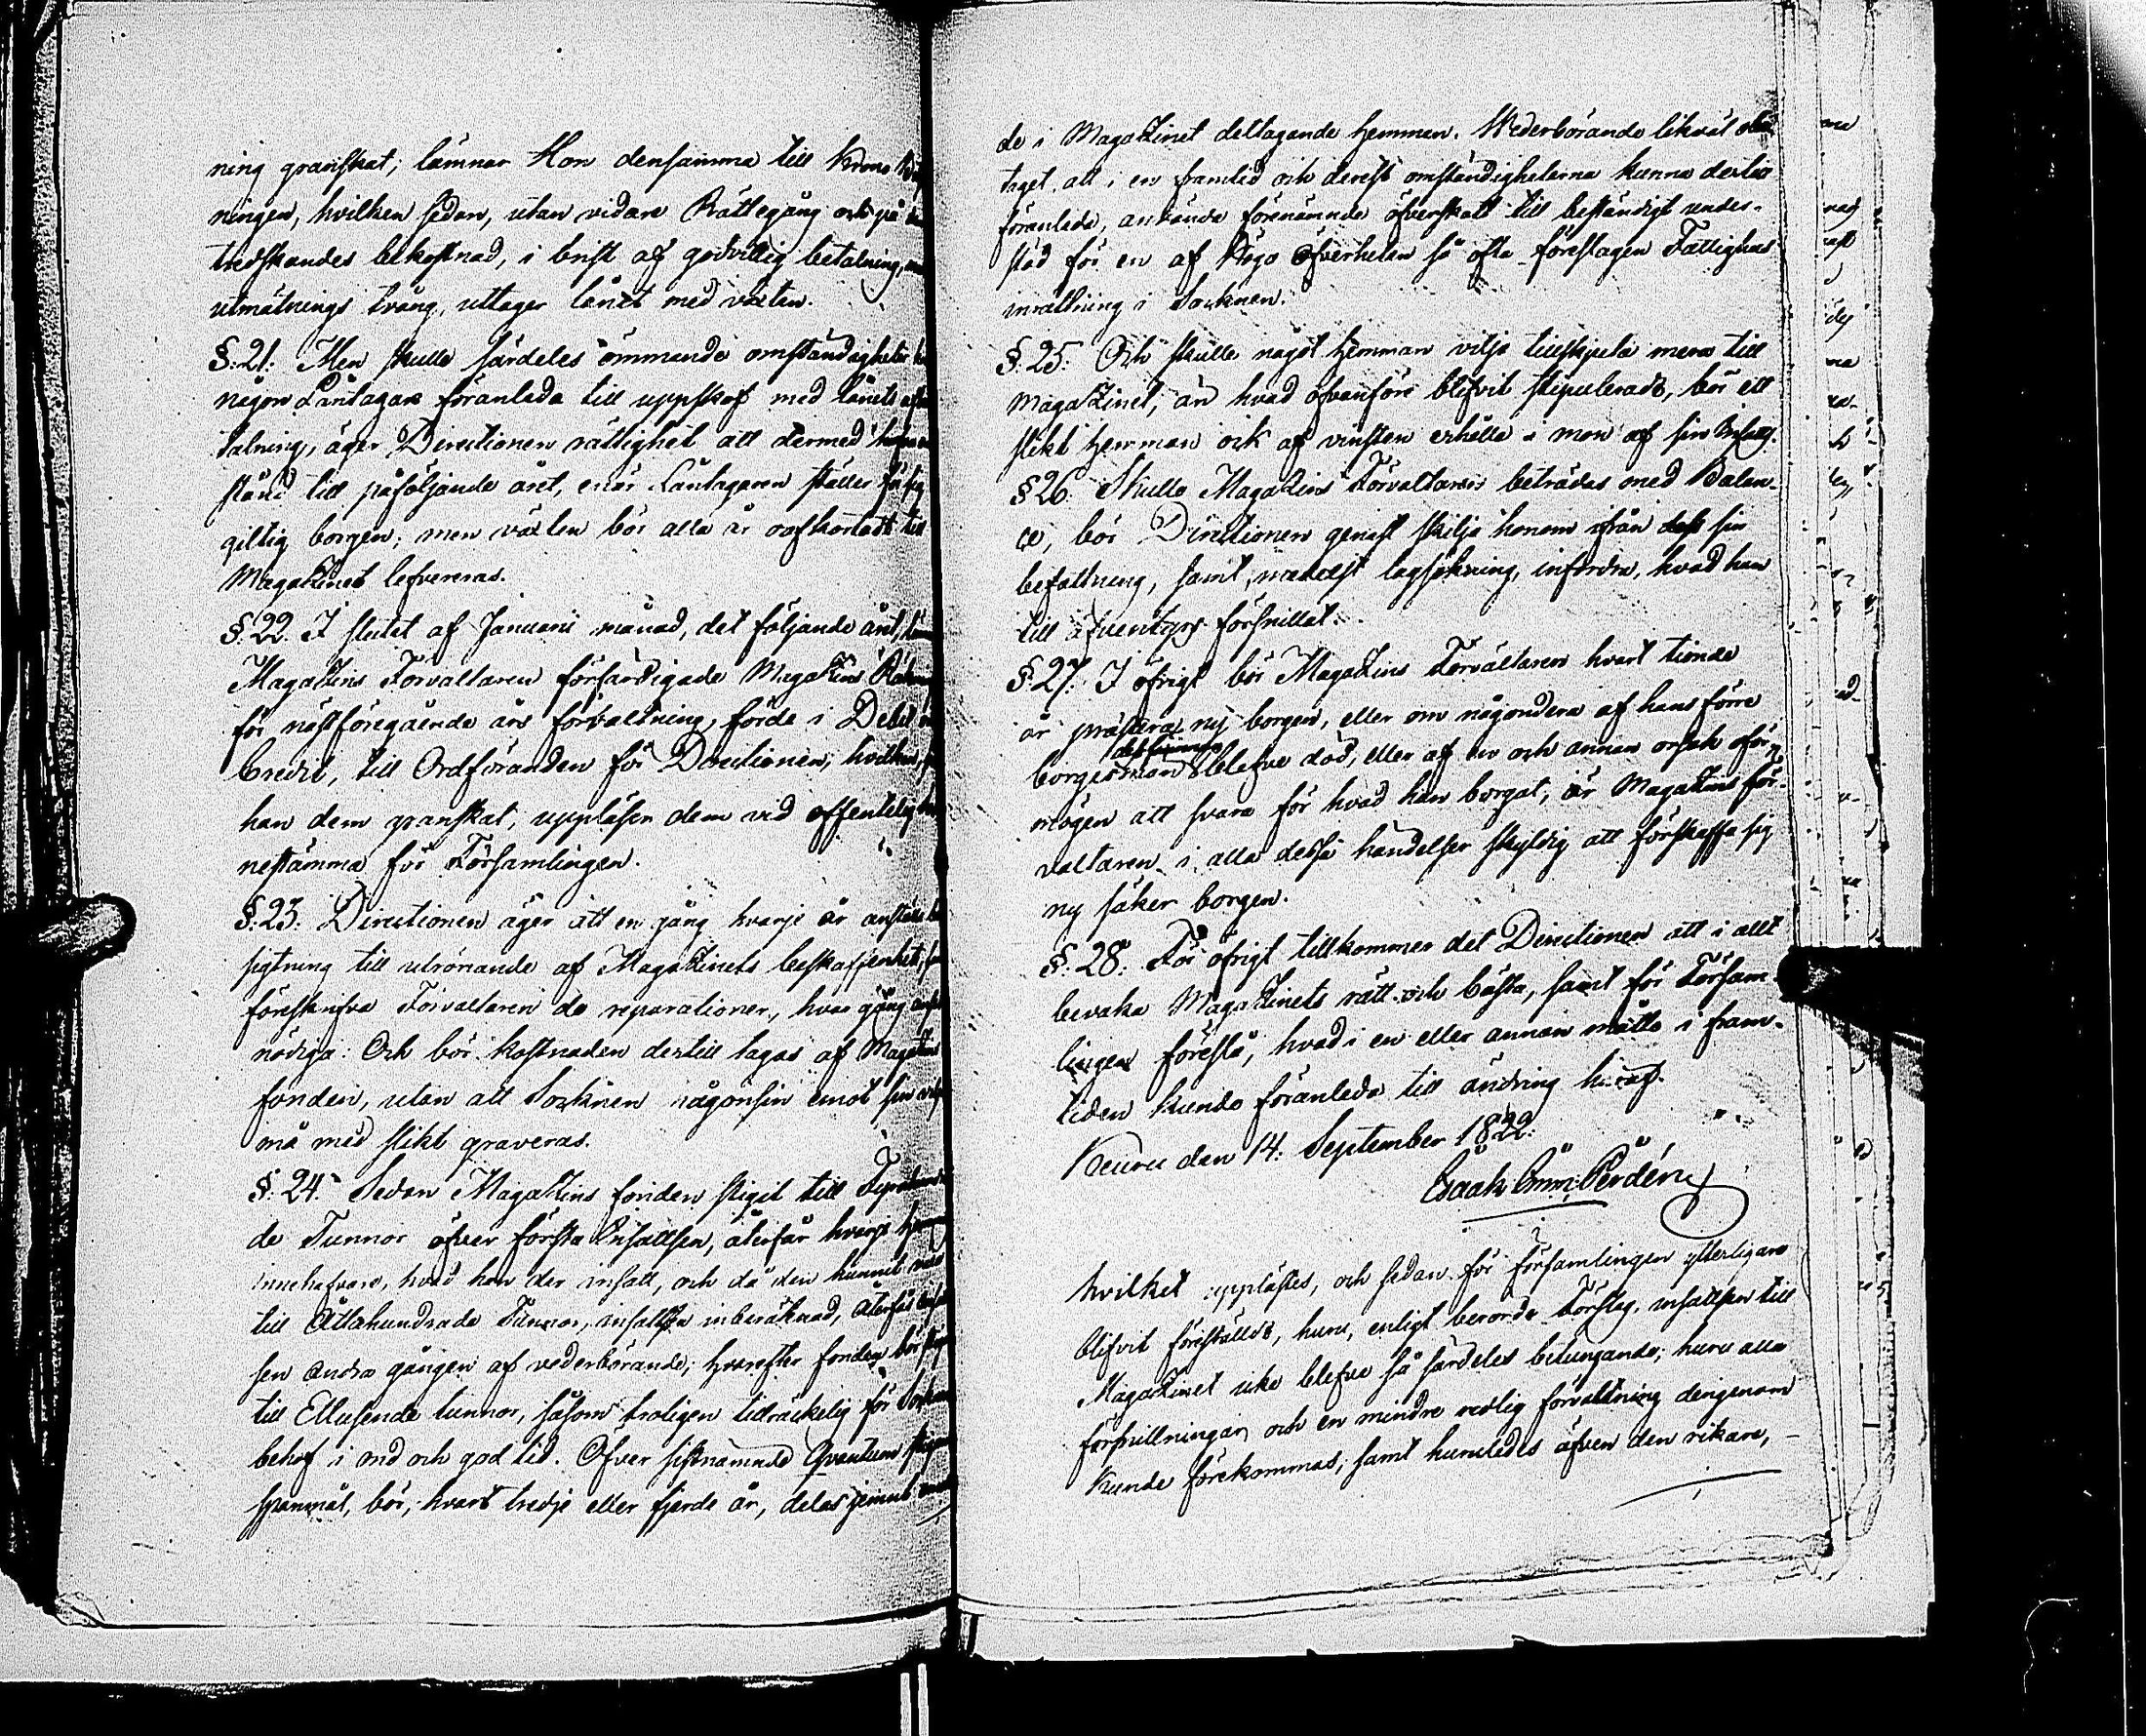 ning granskat; lämnar Hon densamma till Krono
ningen, hvilken sedan, utan vidare Rättegång och på
tredskandes bekostnad, i brist af godvillig betalning,
utmätnings tvång, uttager lånet med växten.
§. 21. Men skulle särdeles ömmande omständigheter
någon Låntagare föranleda till uppskof med lånets
talning, äger Directionen rättighet att dermed
stånd till påföljande året, enär Låntagaren ställer för sig
giltig borgen; men växten bör alla år oafkortadt till
Magazinet lefvereras.
§. 22. I slutet af Januarii månad, det följande året,
Magazins Förvaltaren färdigade Magazins
för nästföregående års förvaltning, förde i Debet
Credit, till Ordföranden för Directionen, hvilken
han dem granskat, uppläser dem vid offentelig
nestämma för Församlingen.
§. 23. Directionen äger att en gång hvarje år anställa
sigtning till utrönande af Magazinets beskaffenhet,
föreskrifva Förvaltaren de reparationer, hvar gång
nödiga: Och bör kostnaden dertill tagas af Magazins
fonden, utan att Socknen någonsin emot sin
må med slikt graveras.
§. 24. Sedan Magazins fonden stigit till
de Tunnor öfver första Insattsen, återfår hvarje
innehafvare, hvad han der insatt, och då den hunnit
till Åttahundrade Tunnor, insattsen inberäknad, återfås
sen andra gången af vederbörande; hvarefter fonden bör stiga
till Ettusende tunnor, såsom troligen tillräckelig för Socknens
behof i ond och god tid. Öfver sistnämnde Qvantum
spanmål, bör, hvart tredje eller fjerde år, delas jemnt
de i Magazinet deltagande hemman. Wederbörande likväl
taget, att i en framtid och derest omständigheterna kunna dertill
föranleda, använda förenämnde öfverskott till beständigt under-
stöd för en af Höga Öfverheten så ofta föreslagen Fattighus
inrättning i Socknen.
§. 25. Och skulle något hemman vilja tillskjuta mera till
Magazinet, än hvad ofvanföre blifvit stipuleradt, bör ett
slikt hemman ock af vinsten erhålla i mon af sin Insatts.
§ 26. Skulle Magazins Förvaltaren beträdas med Balan-
ce, bör Directionen genast skilja honom ifrån dess sin
befattning, samt, medelst lagsökning, infordra, hvad han
till äfventyrs försnillat.
§. 27. I öfrigt bör Magazins Förvaltaren hvart tionde
år prästera ny borgen, eller om någondera af hans förre
borgesman blefve död, eller af en och annan orsak oför-
mögen att svara för hvad han borgat, är Magazins för-
valtaren i alla dessa händelser skyldig att förskaffa sig
ny säker borgen.
§. 28. För öfrigt tillkommer det Directionen att i allt
bevaka Magazinets rätt och bästa, samt för Försam-
lingen föreslå, hvad i en eller annan måtto i fram-
tiden kunde föranleda till ändring häraf.
Keuru den 14. September 1822.
Esaak Emn: Perdén
hvilket upplästes, och sedan för församlingen ytterligare
blifvit föreställdt, huru, enligt berörde Förslag, insattsen till
Magazinet icke blefve så särdeles betungande; huru alla
försnillningar och en mindre redlig förvaltning derigenom
kunde förekommas; samt huruledes äfven den rikare,